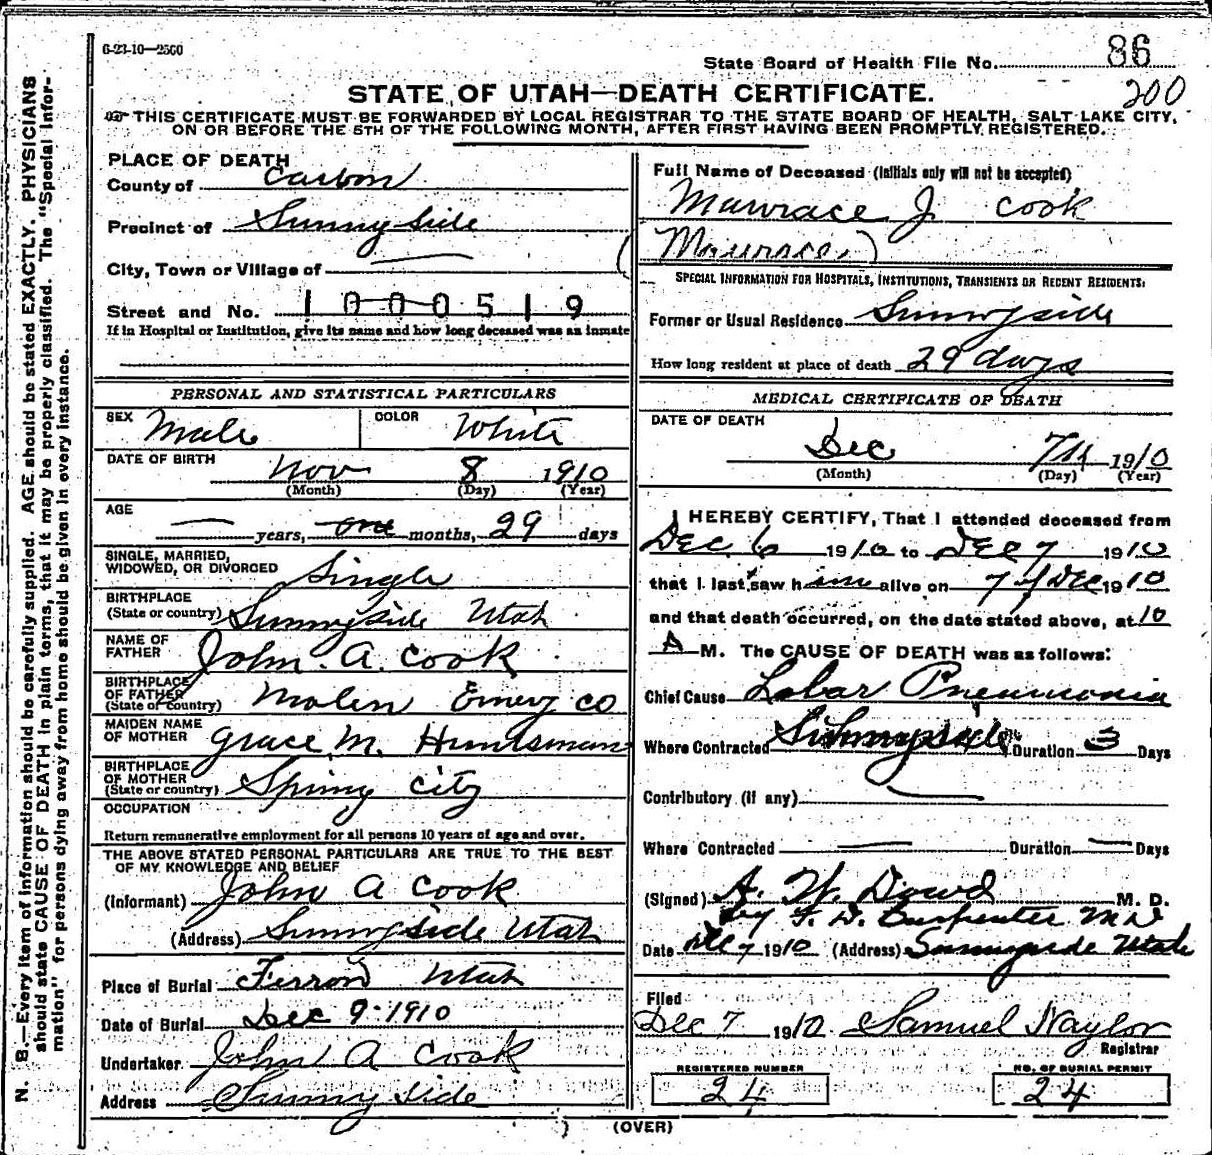 6-23-10—2500
State Board of Health File No. 86
200
STATE OF UTAH—DEATH CERTIFICATE.
THIS CERTIFICATE MUST BE FORWARDED BY LOCAL REGISTRAR TO THE STATE BOARD OF HEALTH, SALT LAKE CITY,
ON OR BEFORE THE 5TH OF THE FOLLOWING MONTH, AFTER FIRST HAVING BEEN PROMPTLY REGISTERED.
N. B.—Every item of information should be carefully supplied. AGE should be stated EXACTLY. PHYSICIANS
should state CAUSE OF DEATH in plain terms, that it may be properly classified. The "Special Infor-
mation" for persons dying away from home should be given in every instance.
PLACE OF DEATH
County of Carbon
Precinct of Sunny side
City, Town or Village of —
Street and No. 1000519
If in Hospital or Institution, give its name and how long deceased was an inmate
PERSONAL AND STATISTICAL PARTICULARS
SEX Male COLOR White
DATE OF BIRTH Nov 8 1910
(Month) (Day) (Year)
AGE
— years, one months, 29 days
SINGLE, MARRIED,
WIDOWED, OR DIVORCED Single
BIRTHPLACE
(State or country) Sunnyside Utah
NAME OF
FATHER John. A. Cook
BIRTHPLACE
OF FATHER
(State or country) Molen Emery CO
MAIDEN NAME
OF MOTHER Grace M. Huntsman
BIRTHPLACE
OF MOTHER
(State or country) Spring City
OCCUPATION
Return remunerative employment for all persons 10 years of age and over.
THE ABOVE STATED PERSONAL PARTICULARS ARE TRUE TO THE BEST
OF MY KNOWLEDGE AND BELIEF
(Informant) John A Cook
(Address) Sunnyside Utah
Place of Burial Ferron Utah
Date of Burial Dec 9 1910
Undertaker John A Cook
Address Sunny Side
Full Name of Deceased (Initials only will not be accepted)
Mawrace J. Cook
(Maurace)
SPECIAL INFORMATION FOR HOSPITALS, INSTITUTIONS, TRANSIENTS OR RECENT RESIDENTS:
Former or Usual Residence Sunnyside
How long resident at place of death 29 days
MEDICAL CERTIFICATE OF DEATH
DATE OF DEATH
Dec 7th 1910
(Month) (Day) (Year)
I HEREBY CERTIFY, That I attended deceased from
Dec 6 1910 to Dec 7 1910
that I last saw him alive on 7 of Dec 1910
and that death occurred, on the date stated above, at 10
A M. The CAUSE OF DEATH was as follows:
Chief Cause Lobar Pneumonia
Where Contracted Sunnyside Duration 3 Days
Contributory (if any) —
Where Contracted — Duration — Days
(Signed) A. W. Dowd M. D.
by F. D. Carpenter MD
Date Dec 7 1910 (Address) Sunnyside Utah
Filed
Dec 7 1910 Samuel Naylor
Registrar
REGISTERED NUMBER
24
NO. OF BURIAL PERMIT
24
(OVER)